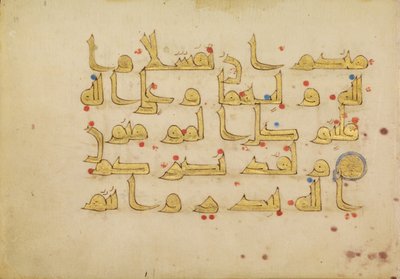 منكم ان تفشلا وا
لله وليهما وعلى الله
فليتوكل المؤمنون
ولقد نصركم
الله ببدر وانتم